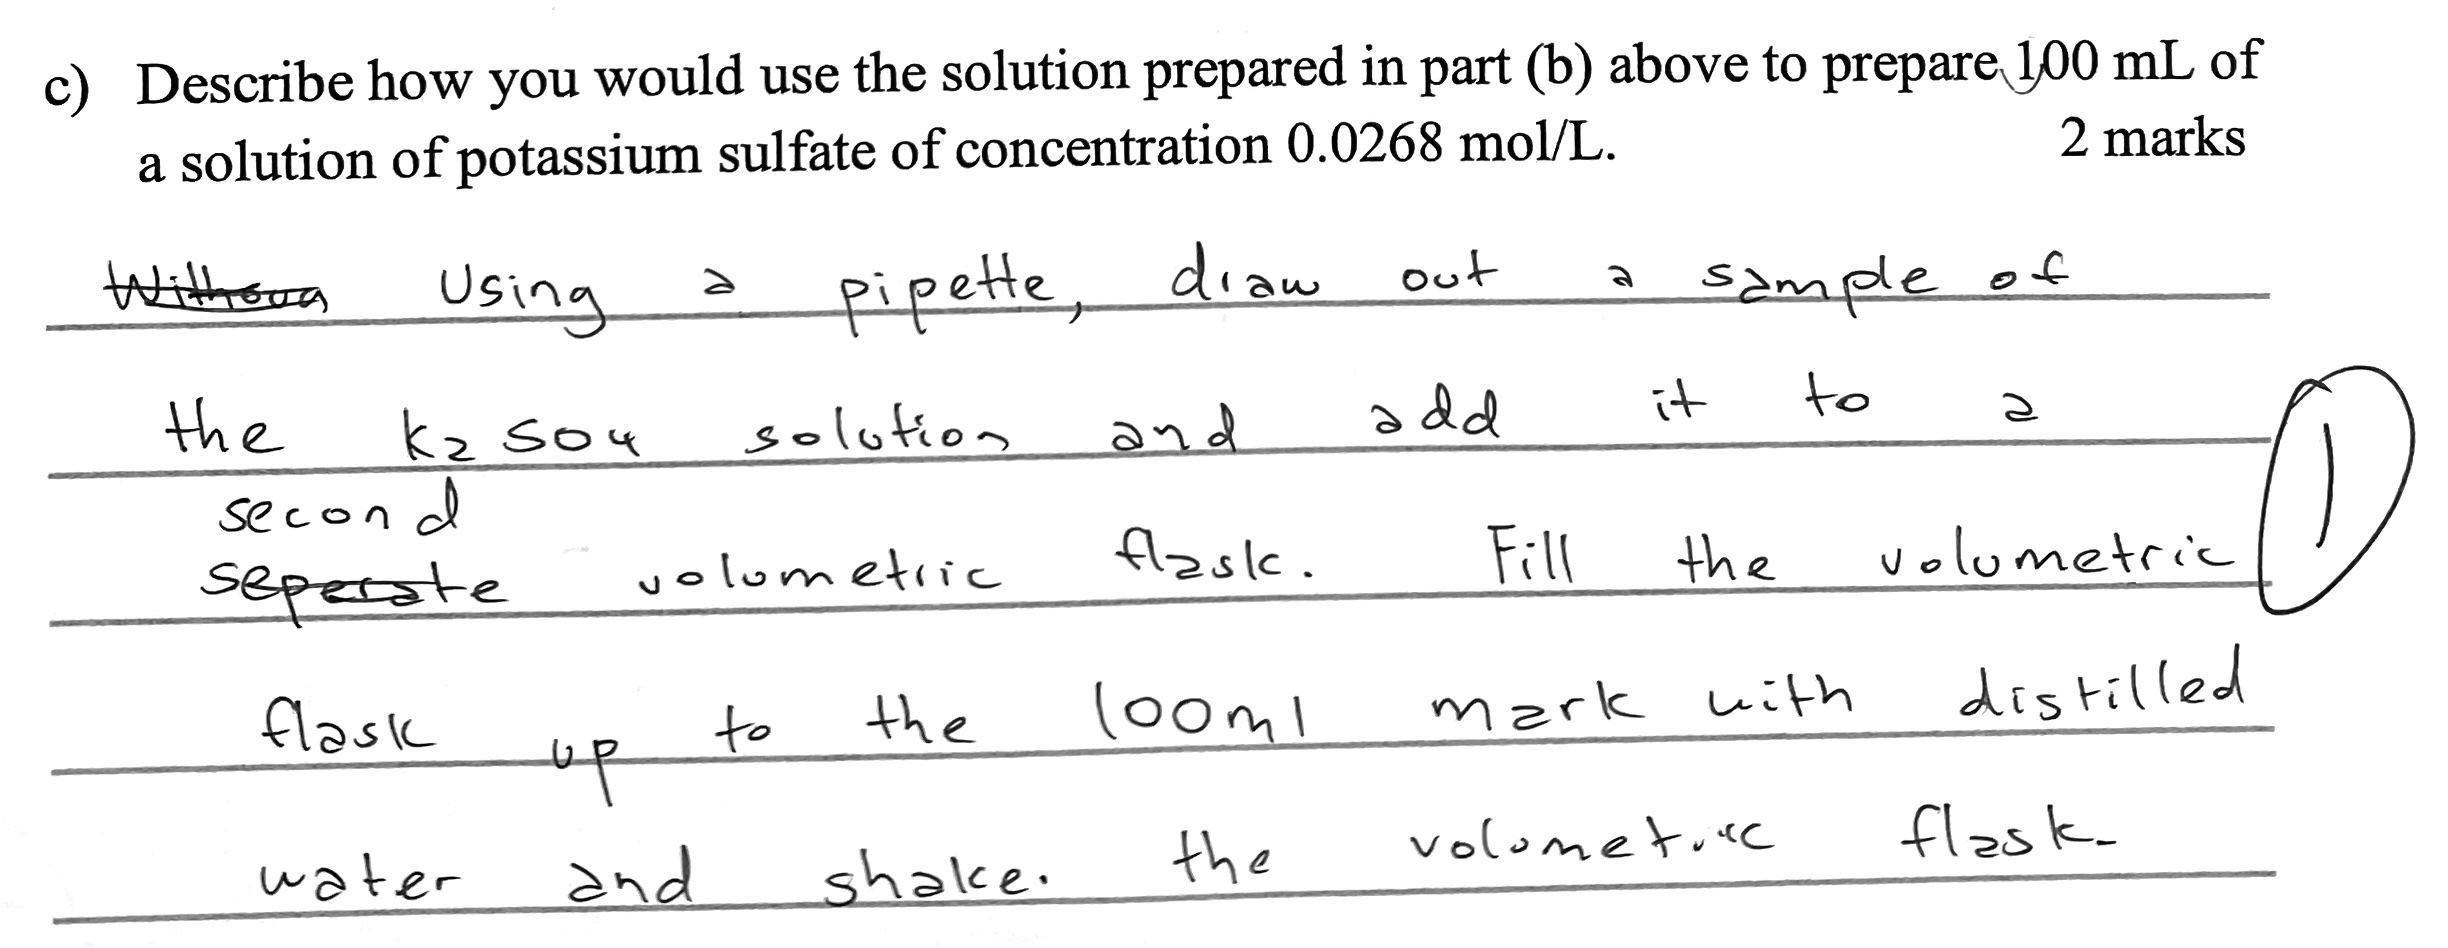 c) Describe how you would use the solution prepared in part (b) above to prepare 100 mL of
a solution of potassium sulfate of concentration 0.0268 mol/L.
2 marks
Using a pipette, draw out a sample of
the K2SO4 solution and add it to a
second
seperate volumetric flask. Fill the volumetric
1
flask up to the 100ml mark with distilled
water and shake. the volumetric flask.